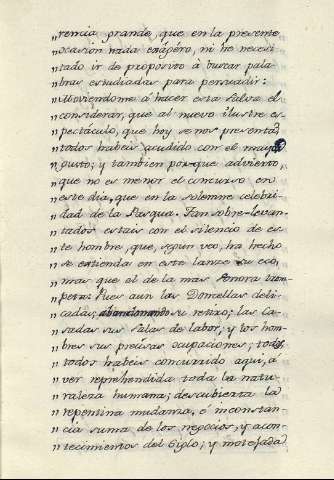 "rencia grande, que en la presente
"ocasion nada exâgéro, ni he necesi
"tado ir de proposito á buscar pala
"bras estudiadas para persuadir:
"Moviendome á hacer esta Salva el
"considerar, que al nuevo ilustre es
"pectáculo, que hoy se nos presenta,
"todos habeis acudido con el mayor
"gusto; y tambien por que advierto,
"que no es menor el concurso en
"este dia, que en la solemne celebri
"dad de la Pasqua. Tan sobre-levan
"tados estais con el silencio de es
"te hombre, que, segun veo, ha hecho
"se extienda en este lance su eco,
"mas que el de la mas sonora trom
"peta: Pues aun las Doncellas deli
"cadas, abandonando su retiro; las ca
"sadas sus salas de labor; y los hom
"bres sus precisas ocupaciones; todos,
"todos habeis concurrido aqui, a
"ver reprehendida toda la natu
"raleza humana; descubierta la
"repentina mudanza, é inconstan
"cia suma de los negocios, y acon
"tecimientos del Siglo; y motejada